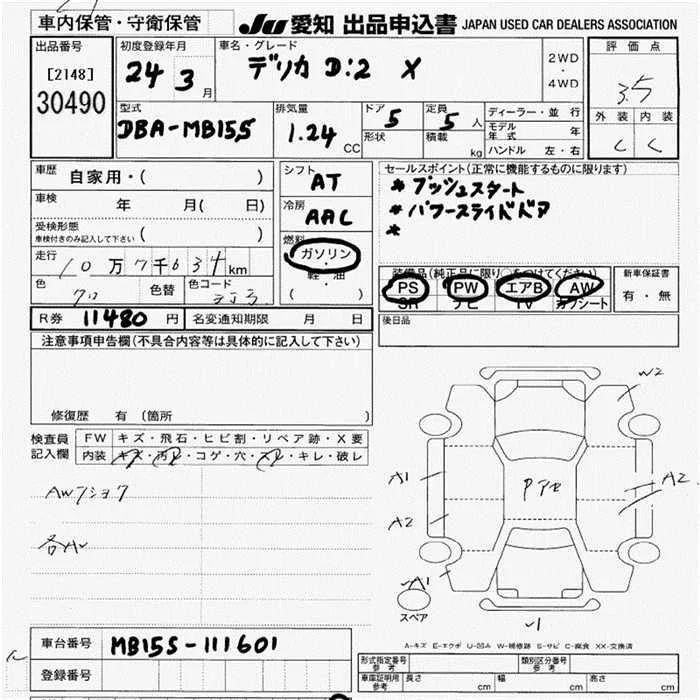 車内保管・守衛保管
JU 愛知 出品申込書 JAPAN USED CAR DEALERS ASSOCIATION
出品番号
[2148]
30490
初度登録年月
24 3月
車名・グレード
デリカ D:2 X
2WD
・
4WD
評価点
3.5
外装 内装
C C
型式
DBA-MB15S
排気量
1.24 CC
ドア 5
形状
定員 5 人
積載 kg
ディーラー・並行
モデル年式 年
ハンドル 左・右
車歴 自家用・( )
車検 年 月( 日)
受検形態
車検付きのみ記入して下さい ( )
走行 10万7千634km
色 クロ 色替 色コード
シフト
AT
冷房
AAC
燃料
ガソリン
軽・油
( )
セールスポイント(正常に機能するものに限ります)
* プッシュスタート
* パワースライドドア
*
装備品(純正品に限り○をつけてください)
PS PW エアB AW
SR ナビ TV カワシート
新車保証書
有・無
R券 11480 円 名変通知期限 月 日
後日品
注意事項申告欄(不具合内容等は具体的に記入して下さい)
修復歴 有 (箇所 )
検査員
記入欄
FW キズ・飛石・ヒビ割・リペア跡・X要
内装 キズ・汚れ・コゲ・穴・スレ・キレ・破レ
W2
A1
A2
A2
A1
スペア
A-キズ E-エクボ U-凹み W-補修跡 S-サビ C-腐食 XX-交換済
車台番号 MB15S-111601
登録番号
型式指定番号
参考
類別区分番号
参考
車庫証明用
参考
長さ cm 幅 cm 高さ cm